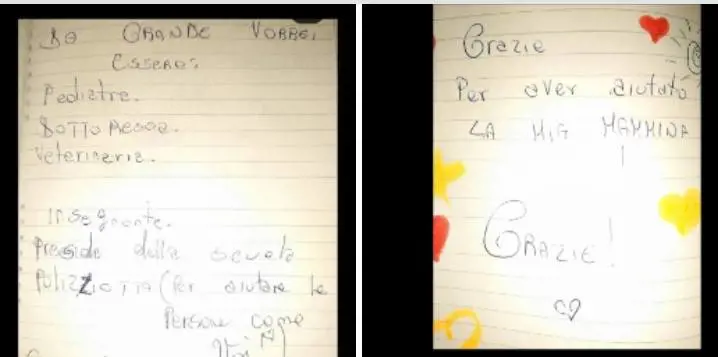 DA GRANDE VORREI
ESSERE:
Pediatra.
SOTTO
Veterinaria.
Insegnante.
Preside della scuola
POLIZZIOTTA (Per aiutare le
Persone come
Voi
Grazie
Per aver aiutato
LA MIA MAMMINA
!
GRAZIE!